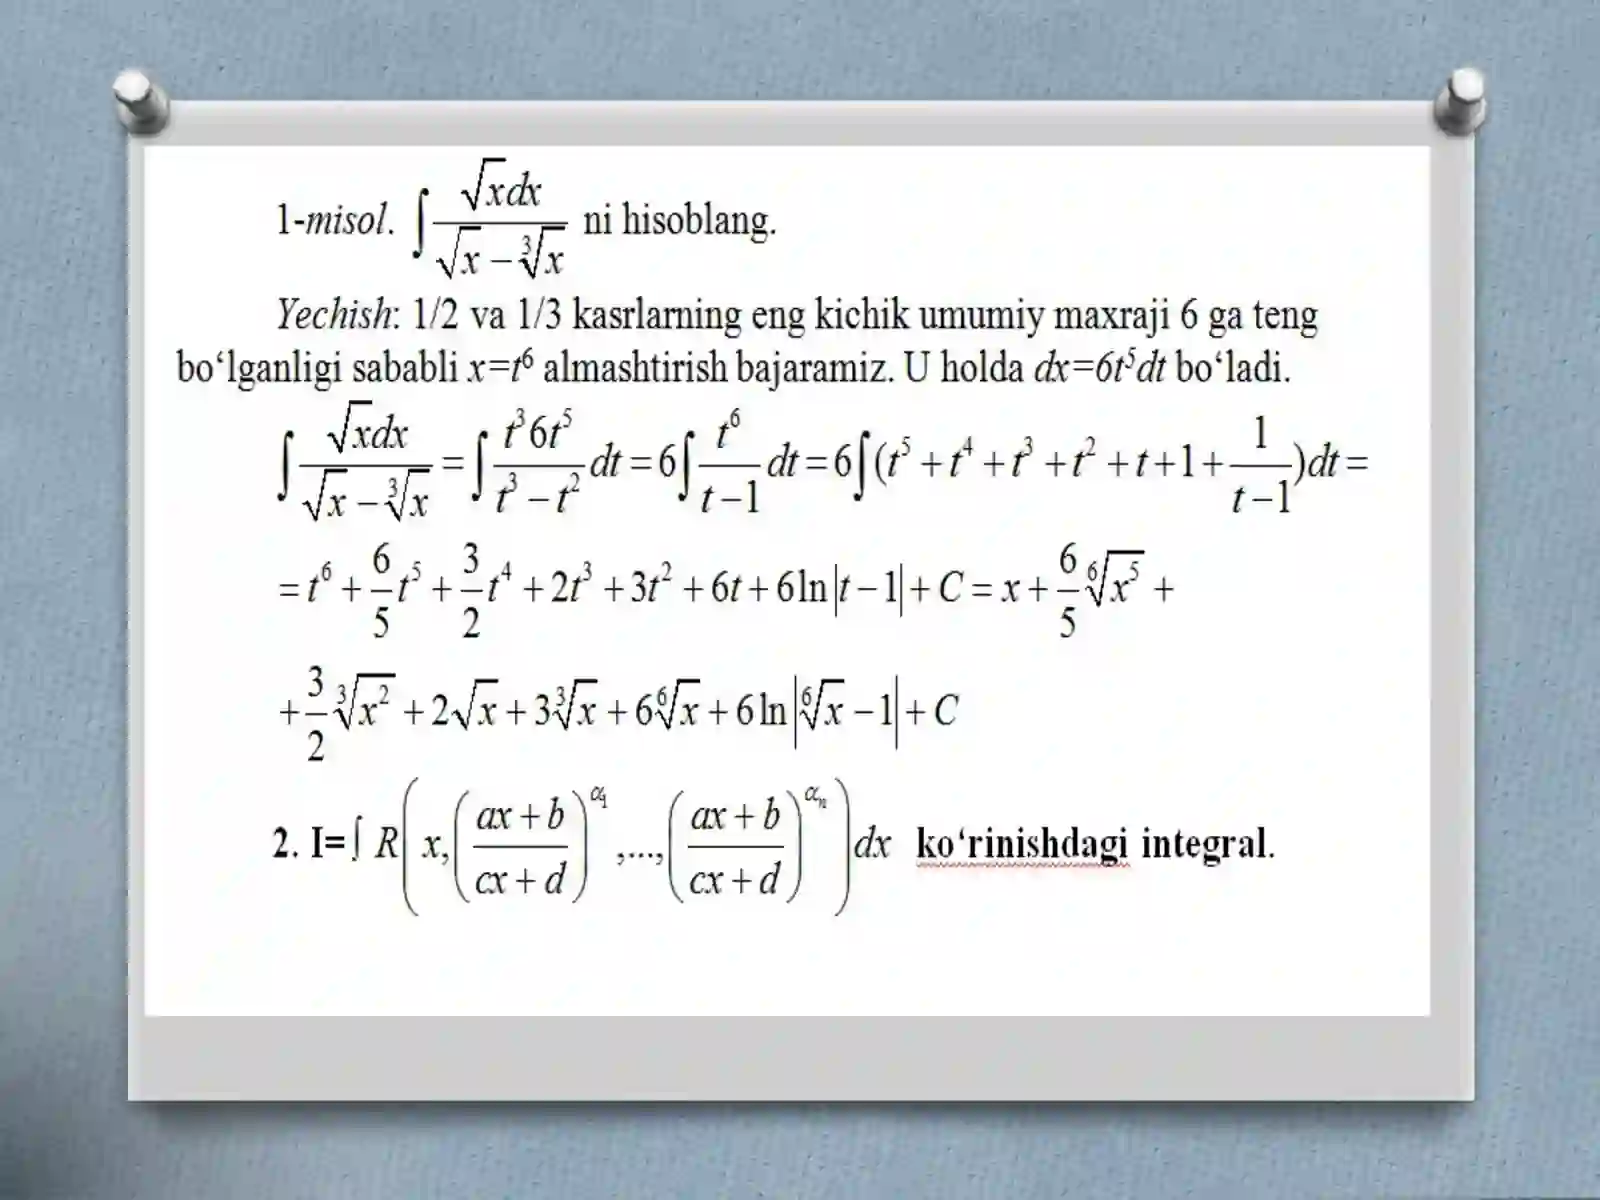 1-misol. ∫ √x dx / (√x − ∛x) ni hisoblang.
Yechish: 1/2 va 1/3 kasrlarning eng kichik umumiy maxraji 6 ga teng
bo‘lganligi sababli x=t⁶ almashtirish bajaramiz. U holda dx=6t⁵dt bo‘ladi.
∫ √x dx / (√x − ∛x) = ∫ t³6t⁵ / (t³ − t²) dt = 6∫ t⁶ / (t−1) dt = 6∫(t⁵ + t⁴ + t³ + t² + t + 1 + 1/(t−1))dt =
= t⁶ + 6/5 t⁵ + 3/2 t⁴ + 2t³ + 3t² + 6t + 6 ln|t − 1| + C = x + 6/5 ⁶√x⁵ +
+ 3/2 ³√x² + 2√x + 3³√x + 6⁶√x + 6 ln|⁶√x − 1| + C
2. I=∫ R(x, ((ax + b)/(cx + d))^α₁ ,..., ((ax + b)/(cx + d))^αₙ) dx ko‘rinishdagi integral.